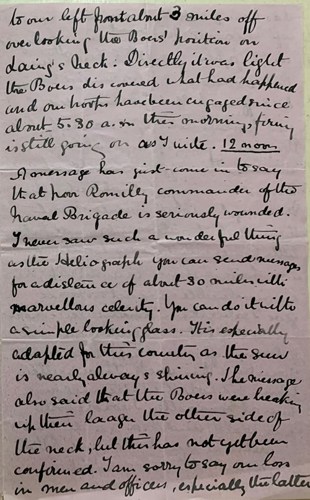 to our left front about 3 miles off
overlooking the Boers' position on
Laing's Neck. Directly it was light
the Boers discovered what had happened
and our troops have been engaged since
about 5.30 a.m this morning, firing
is still going on as I write. 12 noon
A message has just come in to say
that poor Romilly commander of the
Naval Brigade is seriously wounded.
I never saw such a wonderful thing
as the Heliograph you can send messages
for a distance of about 30 miles with
marvellous celerity. You can do it with
a simple looking glass. It is especially
adapted for this country as the sun
is nearly always shining. The message
also said that the Boers were breaking
up their laager the other side of
the neck, but this has not yet been
confirmed. I am sorry to say our loss
in men and officers, especially the latter